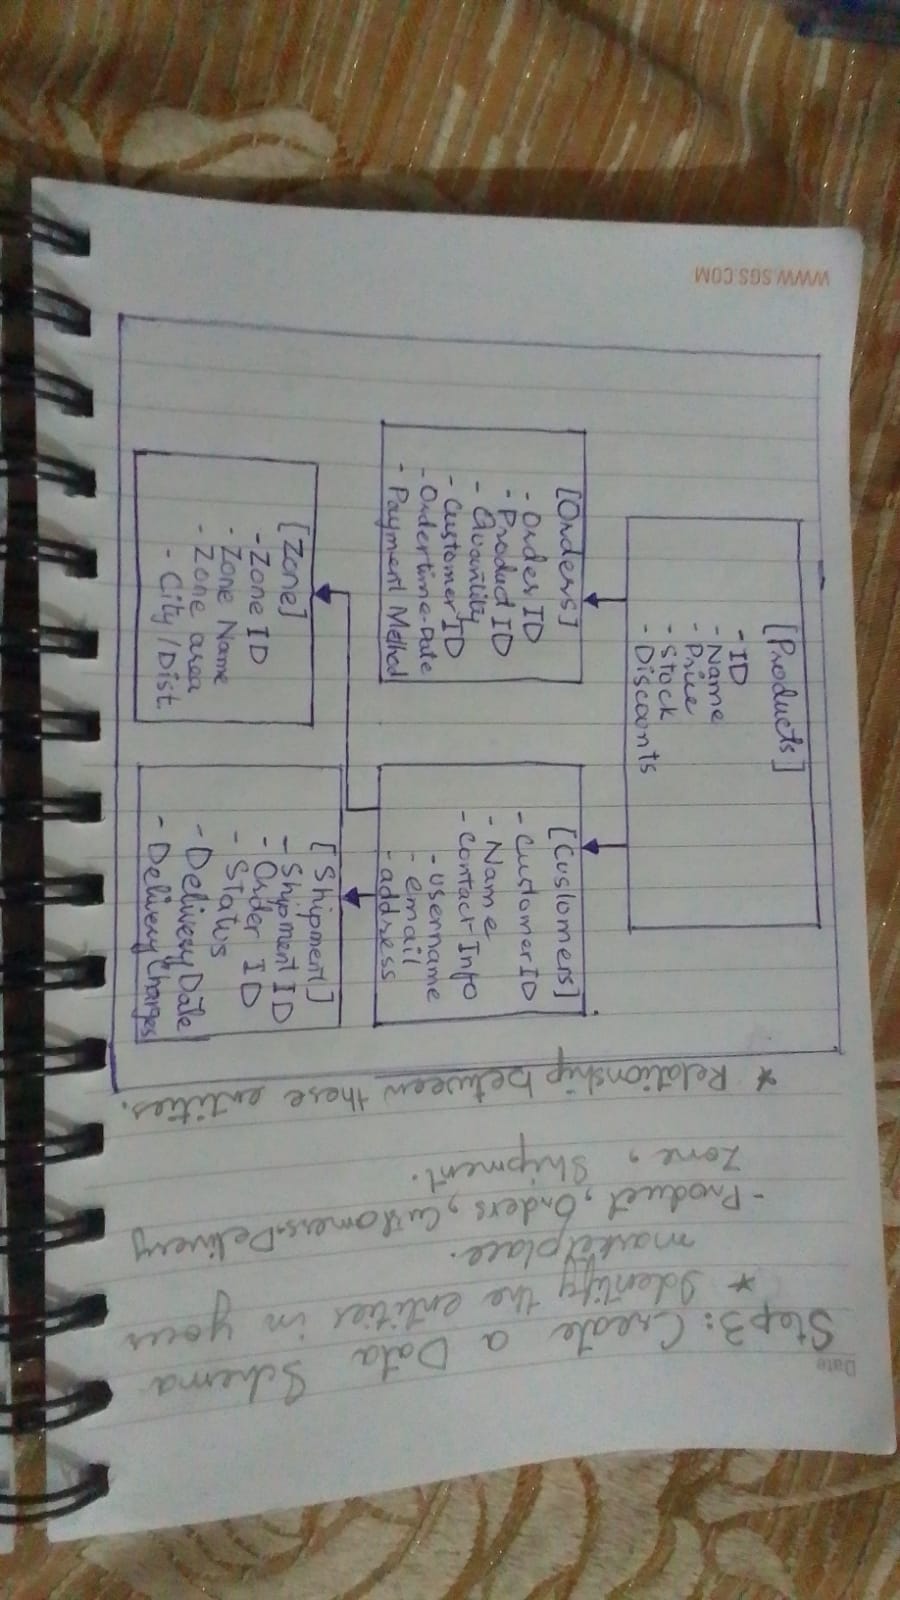 Date
Step3: Create a Data Schema
* Identify the entities in your
marketplace.
- Product, Orders, Customers, Delivery
Zone, Shipment.
* Relationship between these entities.
[Products]
- ID
- Name
- Price
- Stock
- Discounts
[Orders]
- Order ID
- Product ID
- Quantity
- Customer ID
- Ordertime-Date
- Payment Method
[Customers]
- Customer ID
- Name
- Contact Info
- username
- email
- address
[Zone]
- Zone ID
- Zone Name
- Zone area
- City/Dist.
[Shipment]
- Shipment ID
- Order ID
- Status
- Delivery Date
- Delivery Charges
WWW.SGS.COM